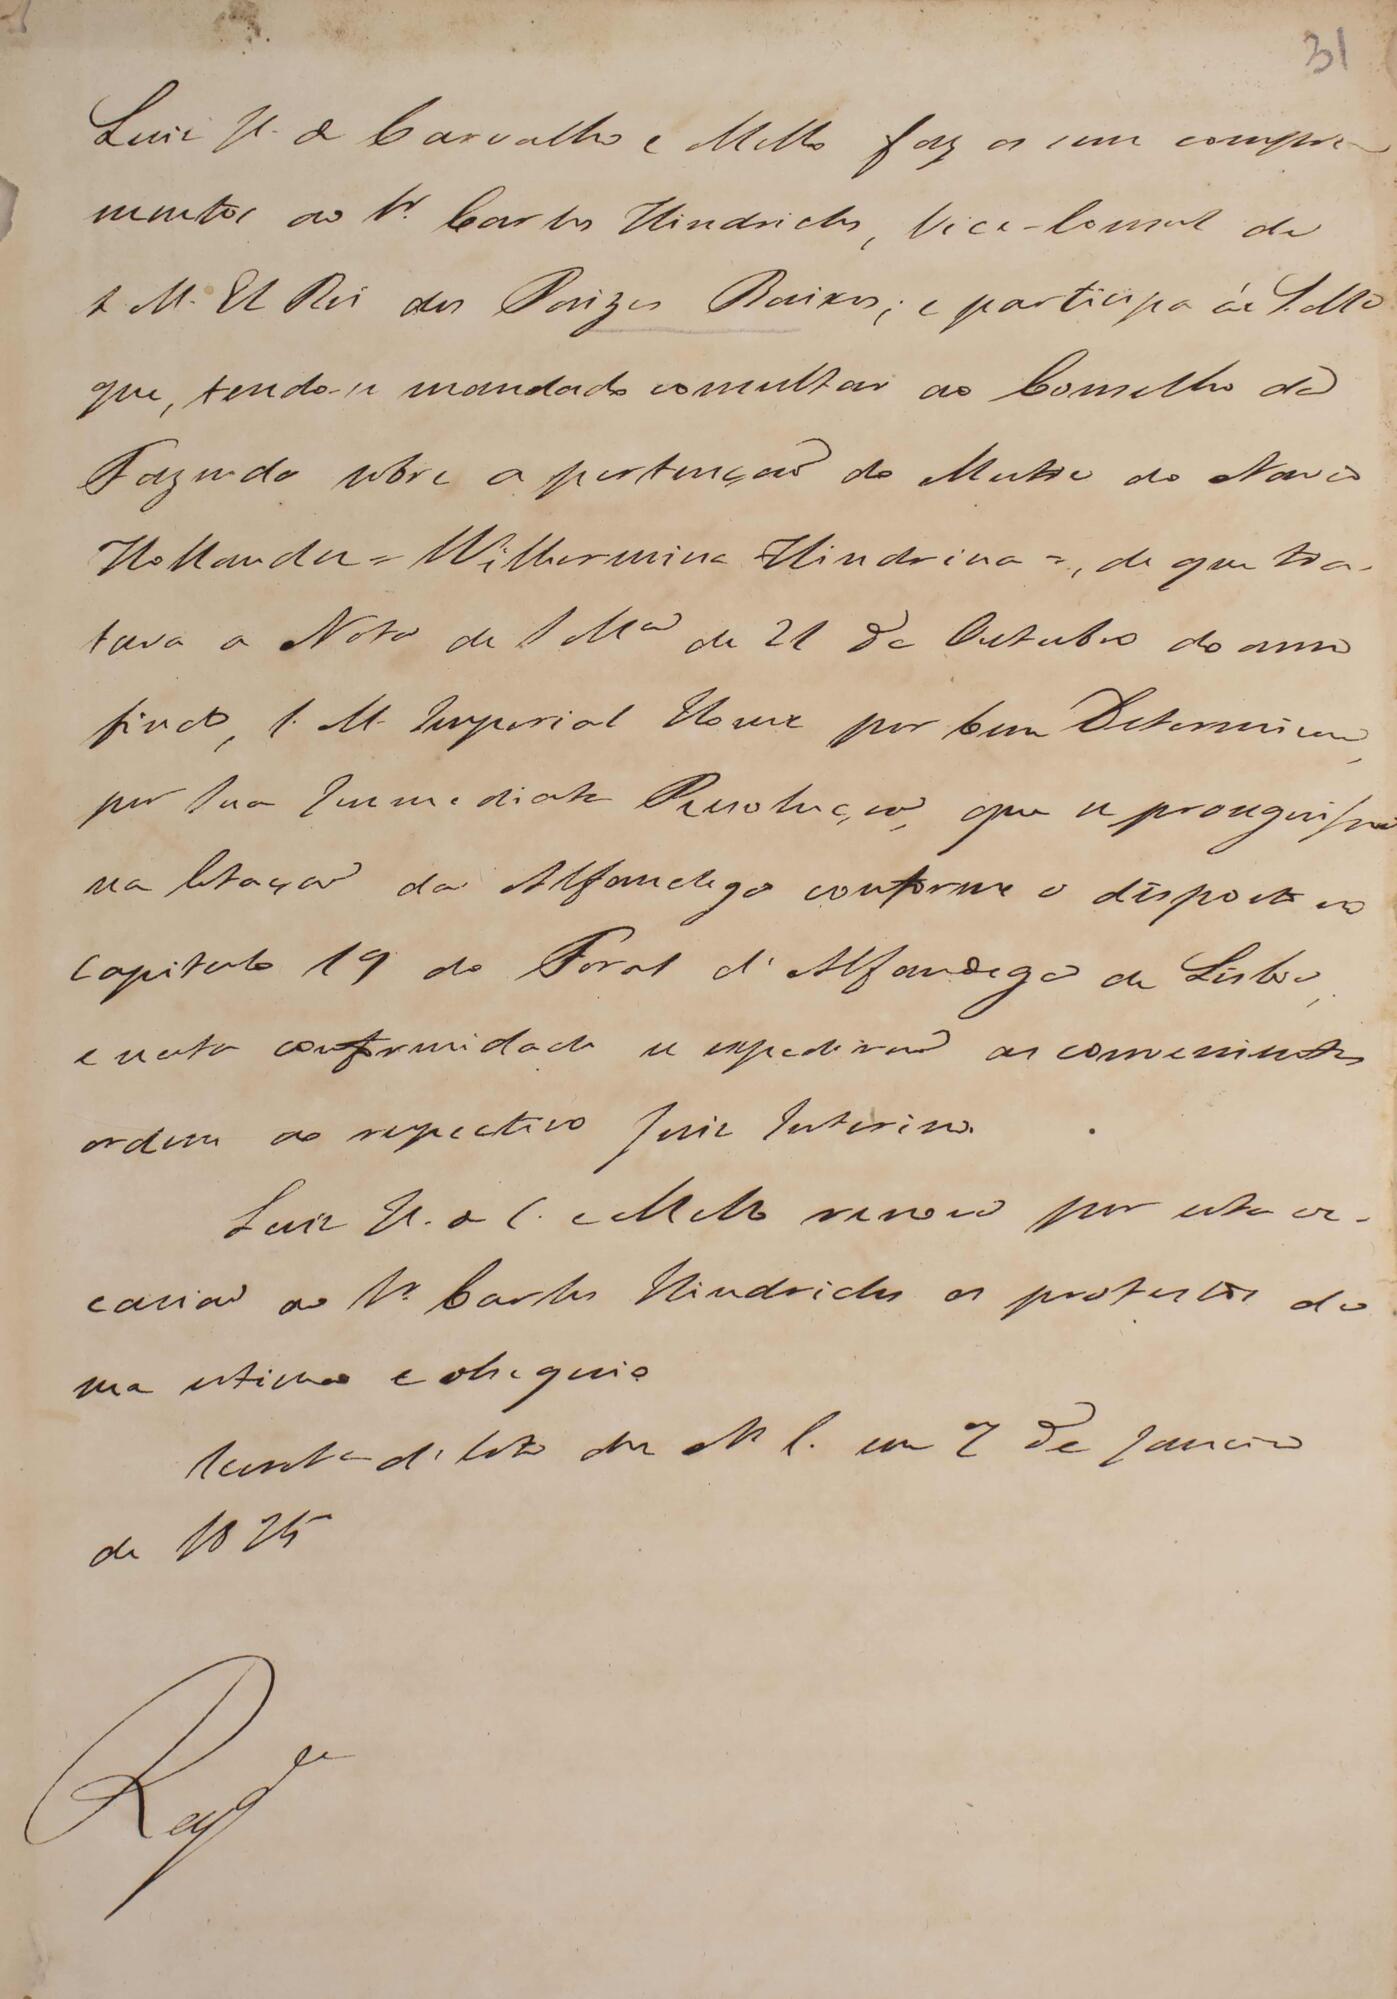 31
Luiz J. de Carvalho e Mello faz os seus compri-
mentos ao Sr. Carlos Hindrichs, Vice-Consul de
S. M. El Rei dos Paizes Baixos; e participa á S. Mce
que, tendo-se mandado consultar ao Conselho da
Fazenda sobre a pertenção do Mestre do Navio
Hollandez = Wilhermina Hindrina =, de que tra-
tava a Nota de S Mce de 21 de Outubro do anno
findo, S. M. Imperial Houve por bem Determinar,
por Sua Immediata Resolução, que se proseguisse
na lotação da Alfandega conforme o disposto no
Capitulo 19 do Foral d'Alfandega de Lisboa,
e nesta conformidade se expedirão as convenientes
ordens ao respectivo Juiz Interino.
Luiz J. de C. e Mello renova por esta oc-
casião ao Sr. Carlos Hindrichs os protestos da
sua estima e obsequio
de Janeiro
de 1825